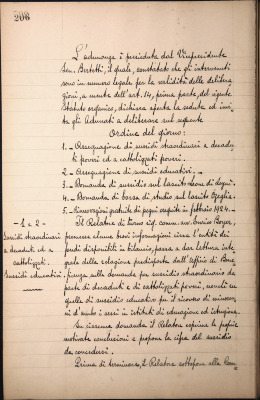 206
L'adunanza è presieduta dal Vicepresidente
Sen. Bertetti, il quale, constatato che gli intervenuti
sono in numero legale per la validità delle delibera-
zioni, a mente dell'art. 14, prima parte, del vigente
Statuto organico, dichiara aperta la seduta ed invi-
ta gli Adunati a deliberare sul seguente
Ordine del giorno:
1. - Assegnazione di sussidi straordinari a decadu-
ti poveri ed a cattolizzati poveri.
2. - Assegnazione di sussidi educativi.
3. - Domanda di sussidio sul lascito Leone di Segni.
4. - Domanda di borsa di studio sul lascito
5. - Rinnovazioni gratuite di pegni eseguite in febbraio 1924.
- 1 e 2 -
Sussidi straordinari
a decaduti ed a
cattolizzati.
Sussidi educativi.
Il Relatore di turno sig. comm. avv. Enrico
premesse alcune brevi informazioni circa l'entità dei
fondi disponibili in bilancio, passa a dar lettura inte-
grale della relazione predisposta dall'Ufficio di Bene-
ficenza sulle domande per sussidio straordinario da
parte di decaduti e di cattolizzati poveri, nonchè su
quelle di sussidio educativo per il ricovero di minoren-
ni d'ambo i sessi in istituti di educazione ed istruzione.
Su ciascuna domanda il Relatore esprime le proprie
motivate conclusioni e propone la cifra del sussidio
da concedersi.
Prima di terminare, il Relatore sottopone alla Com=